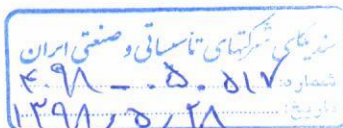 سندیکای شرکتهای تأسیساتی و صنعتی ایران
شماره: ۴۰۹۸ - ۵۰۵۱۷
تاریخ: ۱۳۹۸/۵/۲۸